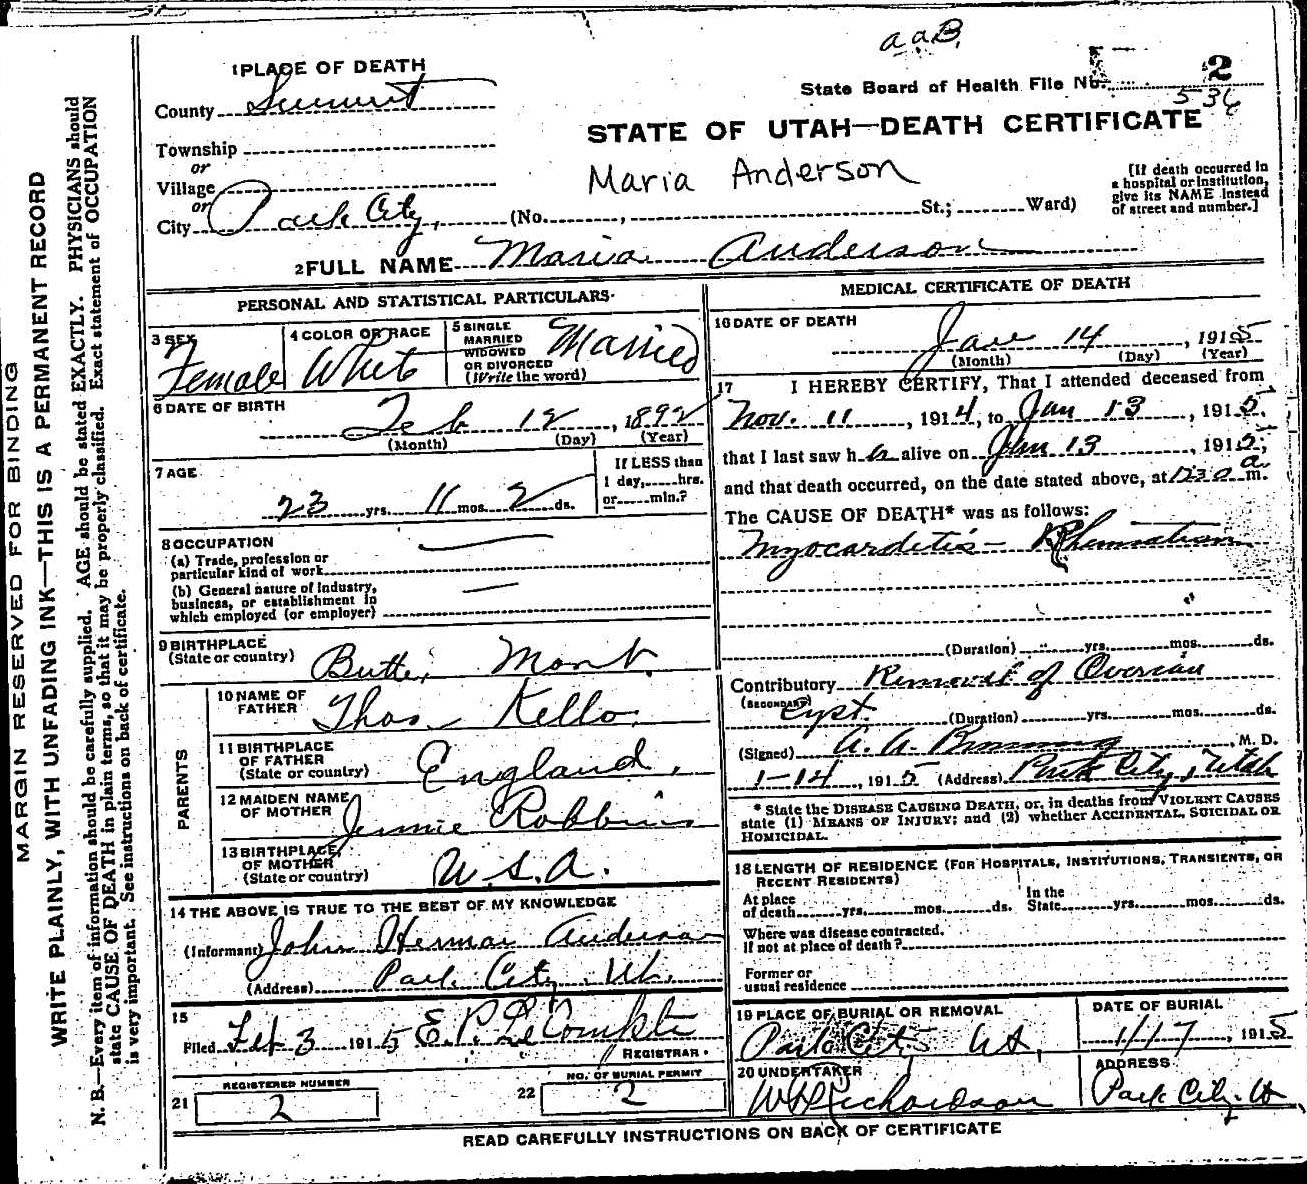 a a B.
State Board of Health File No. 2
536
1 PLACE OF DEATH
County Summit
STATE OF UTAH—DEATH CERTIFICATE
Township
or
Village
or
City Park City, (No. , St.; Ward)
Maria Anderson
[If death occurred in
a hospital or institution,
give its NAME instead
of street and number.]
2 FULL NAME Maria Anderson
PERSONAL AND STATISTICAL PARTICULARS.
3 SEX
Female
4 COLOR OR RACE
White
5 SINGLE
MARRIED
WIDOWED
OR DIVORCED
(Write the word)
Married
6 DATE OF BIRTH
Feb 12, 1892
(Month) (Day) (Year)
7 AGE
23 yrs. 11 mos. 2 ds.
If LESS than
1 day, hrs.
or min.?
8 OCCUPATION
(a) Trade, profession or
particular kind of work
(b) General nature of industry,
business, or establishment in
which employed (or employer)
9 BIRTHPLACE
(State or country) Butte, Mont.
PARENTS
10 NAME OF
FATHER Thos Kello
11 BIRTHPLACE
OF FATHER
(State or country) England,
12 MAIDEN NAME
OF MOTHER Jennie Robbins
13 BIRTHPLACE
OF MOTHER
(State or country) U.S.A.
14 THE ABOVE IS TRUE TO THE BEST OF MY KNOWLEDGE
(Informant) John Herman Anderson
(Address) Park City Ut.
15
Filed Feb 3 1915 E. P. LeCompte
REGISTRAR.
REGISTERED NUMBER
21 2
NO. OF BURIAL PERMIT
22 2
MEDICAL CERTIFICATE OF DEATH
16 DATE OF DEATH
Jan 14, 1915
(Month) (Day) (Year)
17 I HEREBY CERTIFY, That I attended deceased from
Nov. 11, 1914, to Jan 13, 1915,
that I last saw her alive on Jan 13, 1915,
and that death occurred, on the date stated above, at 1230 a m.
The CAUSE OF DEATH* was as follows:
Myocarditis - Rheumatism
(Duration) yrs. mos. ds.
Contributory Removal of Ovarian
(SECONDARY) Cyst. (Duration) yrs. mos. ds.
(Signed) M. D.
1-14, 1915 (Address) Park City, Utah
* State the DISEASE CAUSING DEATH, or, in deaths from VIOLENT CAUSES
state (1) MEANS OF INJURY; and (2) whether ACCIDENTAL, SUICIDAL OR
HOMICIDAL.
18 LENGTH OF RESIDENCE (FOR HOSPITALS, INSTITUTIONS, TRANSIENTS, OR
RECENT RESIDENTS)
At place
of death yrs. mos. ds.
In the
State yrs. mos. ds.
Where was disease contracted,
if not at place of death?
Former or
usual residence
19 PLACE OF BURIAL OR REMOVAL
Park City Ut,
DATE OF BURIAL
1/17, 1915
20 UNDERTAKER
W H Richardson
ADDRESS
Park City. Ut
READ CAREFULLY INSTRUCTIONS ON BACK OF CERTIFICATE
MARGIN RESERVED FOR BINDING
WRITE PLAINLY, WITH UNFADING INK—THIS IS A PERMANENT RECORD
N. B.—Every item of information should be carefully supplied. AGE should be stated EXACTLY. PHYSICIANS should
state CAUSE OF DEATH in plain terms, so that it may be properly classified. Exact statement of OCCUPATION
is very important. See instructions on back of certificate.